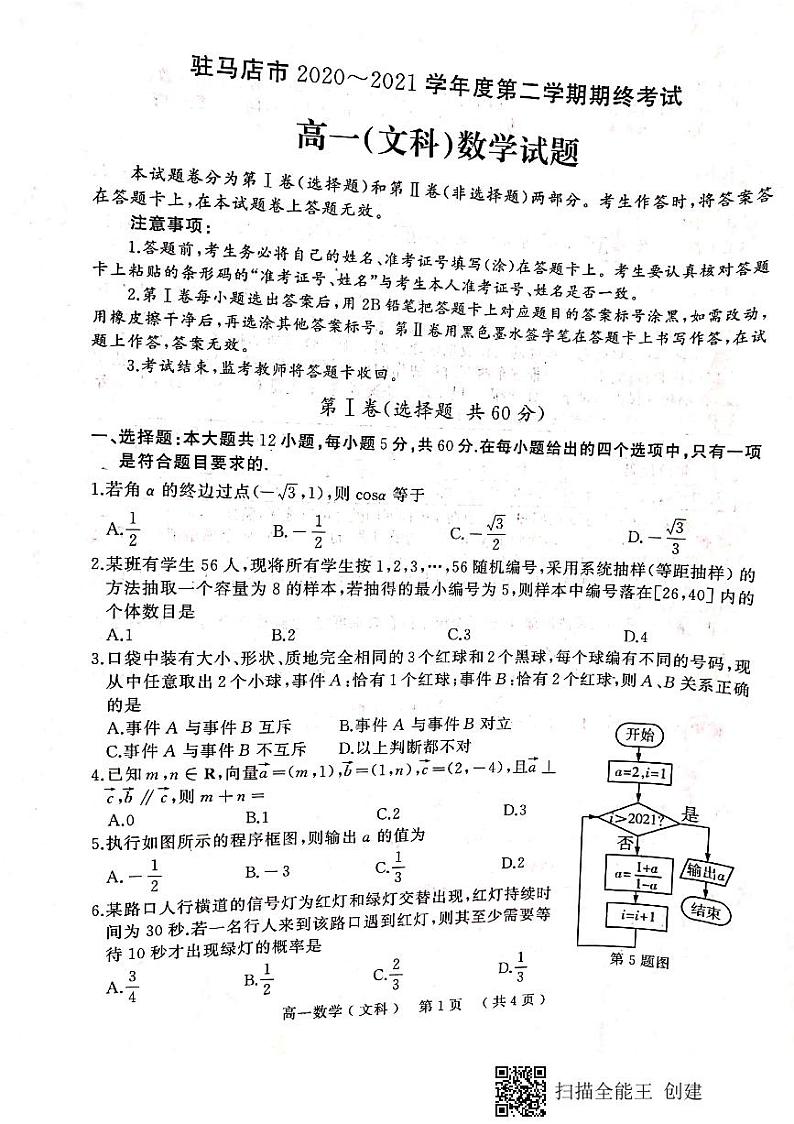 驻马店市 2020～2021 学年度第二学期期终考试
高一(文科)数学试题
本试题卷分为第Ⅰ卷(选择题)和第Ⅱ卷(非选择题)两部分。考生作答时,将答案答
在答题卡上,在本试题卷上答题无效。
注意事项:
1.答题前,考生务必将自己的姓名、准考证号填写(涂)在答题卡上。考生要认真核对答题
卡上粘贴的条形码的“准考证号、姓名”与考生本人准考证号、姓名是否一致。
2.第Ⅰ卷每小题选出答案后,用2B铅笔把答题卡上对应题目的答案标号涂黑,如需改动,
用橡皮擦干净后,再选涂其他答案标号。第Ⅱ卷用黑色墨水签字笔在答题卡上书写作答,在试
题上作答,答案无效。
3.考试结束,监考教师将答题卡收回。
第Ⅰ卷(选择题 共60分)
一、选择题:本大题共12小题,每小题5分,共60分.在每小题给出的四个选项中,只有一项
是符合题目要求的.
1.若角 α 的终边过点(−√3,1),则 cosα 等于
A.1/2 B.−1/2 C.−√3/2 D.−√3/3
2.某班有学生56人,现将所有学生按1,2,3,…,56随机编号,采用系统抽样(等距抽样)的
方法抽取一个容量为8的样本,若抽得的最小编号为5,则样本中编号落在[26,40]内的
个体数目是
A.1 B.2 C.3 D.4
3.口袋中装有大小、形状、质地完全相同的3个红球和2个黑球,每个球编有不同的号码,现
从中任意取出2个小球,事件A:恰有1个红球;事件B:恰有2个红球,则A、B关系正确
的是
A.事件A与事件B互斥 B.事件A与事件B对立
C.事件A与事件B不互斥 D.以上判断都不对
4.已知m,n∈R,向量a⃗=(m,1),b⃗=(1,n),c⃗=(2,−4),且a⃗⊥
c⃗,b⃗∥c⃗,则m+n=
A.0 B.1 C.2 D.3
5.执行如图所示的程序框图,则输出a的值为
A.−1/2 B.−3 C.1/3 D.2
6.某路口人行横道的信号灯为红灯和绿灯交替出现,红灯持续时
间为30秒.若一名行人来到该路口遇到红灯,则其至少需要等
待10秒才出现绿灯的概率是
A.3/4 B.1/2 C.2/3 D.1/3
开始
a=2,i=1
i>2021?
是
否
a=(1+a)/(1−a)
输出a
i=i+1
结束
第5题图
高一数学(文科) 第1页 (共4页)
扫描全能王 创建